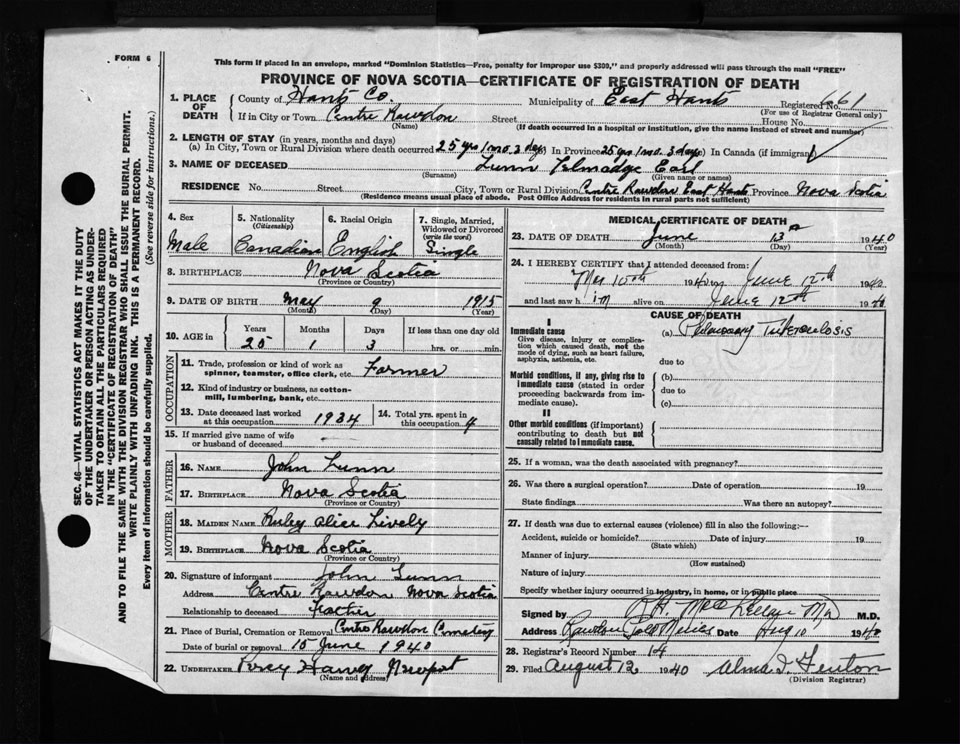 FORM 6
This form if placed in an envelope, marked "Dominion Statistics—Free, penalty for improper use $300," and properly addressed will pass through the mail "FREE"
PROVINCE OF NOVA SCOTIA—CERTIFICATE OF REGISTRATION OF DEATH
SEC. 46—VITAL STATISTICS ACT MAKES IT THE DUTY
OF THE UNDERTAKER OR PERSON ACTING AS UNDER-
TAKER TO OBTAIN ALL THE PARTICULARS REQUIRED
IN THE "CERTIFICATE OF REGISTRATION OF DEATH"
AND TO FILE THE SAME WITH THE DIVISION REGISTRAR WHO SHALL ISSUE THE BURIAL PERMIT.
WRITE PLAINLY WITH UNFADING INK. THIS IS A PERMANENT RECORD.
Every item of information should be carefully supplied. (See reverse side for instructions.)
1. PLACE OF DEATH County of Hants Co. Municipality of East Hants Registered No. 661
(For use of Registrar General only)
If in City or Town Centre Rawdon Street House No.
(Name) (If death occurred in a hospital or institution, give the name instead of street and number)
2. LENGTH OF STAY (in years, months and days)
(a) In City, Town or Rural Division where death occurred 25 yrs 1 mo. 3 days In Province 25 yrs 1 mo. 3 days In Canada (if immigrant)
3. NAME OF DECEASED Lunn Earl
(Surname) (Given name or names)
RESIDENCE No. Street City, Town or Rural Division Centre Rawdon East Hants Province Nova Scotia
(Residence means usual place of abode. Post Office Address for residents in rural parts not sufficient)
4. Sex 5. Nationality (Citizenship) 6. Racial Origin 7. Single, Married, Widowed or Divorced (write the word)
Male Canadian English Single
8. BIRTHPLACE Nova Scotia
(Province or Country)
9. DATE OF BIRTH May 9 1915
(Month) (Day) (Year)
10. AGE in Years Months Days If less than one day old
25 1 3 hrs. or min.
OCCUPATION
11. Trade, profession or kind of work as
spinner, teamster, office clerk, etc. Farmer
12. Kind of industry or business, as cotton-
mill, lumbering, bank, etc.
13. Date deceased last worked
at this occupation 1934
14. Total yrs. spent in
this occupation 4
15. If married give name of wife
or husband of deceased
FATHER
16. NAME John Lunn
17. BIRTHPLACE Nova Scotia
(Province or Country)
MOTHER
18. MAIDEN NAME Ruby Alice Lively
19. BIRTHPLACE Nova Scotia
(Province or Country)
20. Signature of informant John Lunn
Address Centre Rawdon Nova Scotia
Relationship to deceased Father
21. Place of Burial, Cremation or Removal Centre Rawdon Cemetery
Date of burial or removal 15 June 1940
22. UNDERTAKER Percy Harvey Newport
(Name and address)
MEDICAL CERTIFICATE OF DEATH
23. DATE OF DEATH June 13 1940
(Month) (Day) (Year)
24. I HEREBY CERTIFY that I attended deceased from:
10th 1940 June 12th 1940
and last saw him alive on June 12th 1940
CAUSE OF DEATH
I
Immediate cause
Give disease, injury or complica-
tion which caused death, not the
mode of dying, such as heart failure,
asphyxia, asthenia, etc.
(a) Pulmonary Tuberculosis
due to
Morbid conditions, if any, giving rise to
immediate cause (stated in order
proceeding backwards from im-
mediate cause).
(b)
due to
(c)
II
Other morbid conditions (if important)
contributing to death but not
causally related to immediate cause.
25. If a woman, was the death associated with pregnancy?
26. Was there a surgical operation? Date of operation 19
State findings Was there an autopsy?
27. If death was due to external causes (violence) fill in also the following:—
Accident, suicide or homicide? Date of injury 19
(State which)
Manner of injury
(How sustained)
Nature of injury
Specify whether injury occurred in industry, in home, or in public place
Signed by R.A. MacLellan MD M.D.
Address Rawdon Gold Mines Date Aug 10 1940
28. Registrar's Record Number 14
29. Filed August 12 1940 Alma I. Fenton
(Division Registrar)